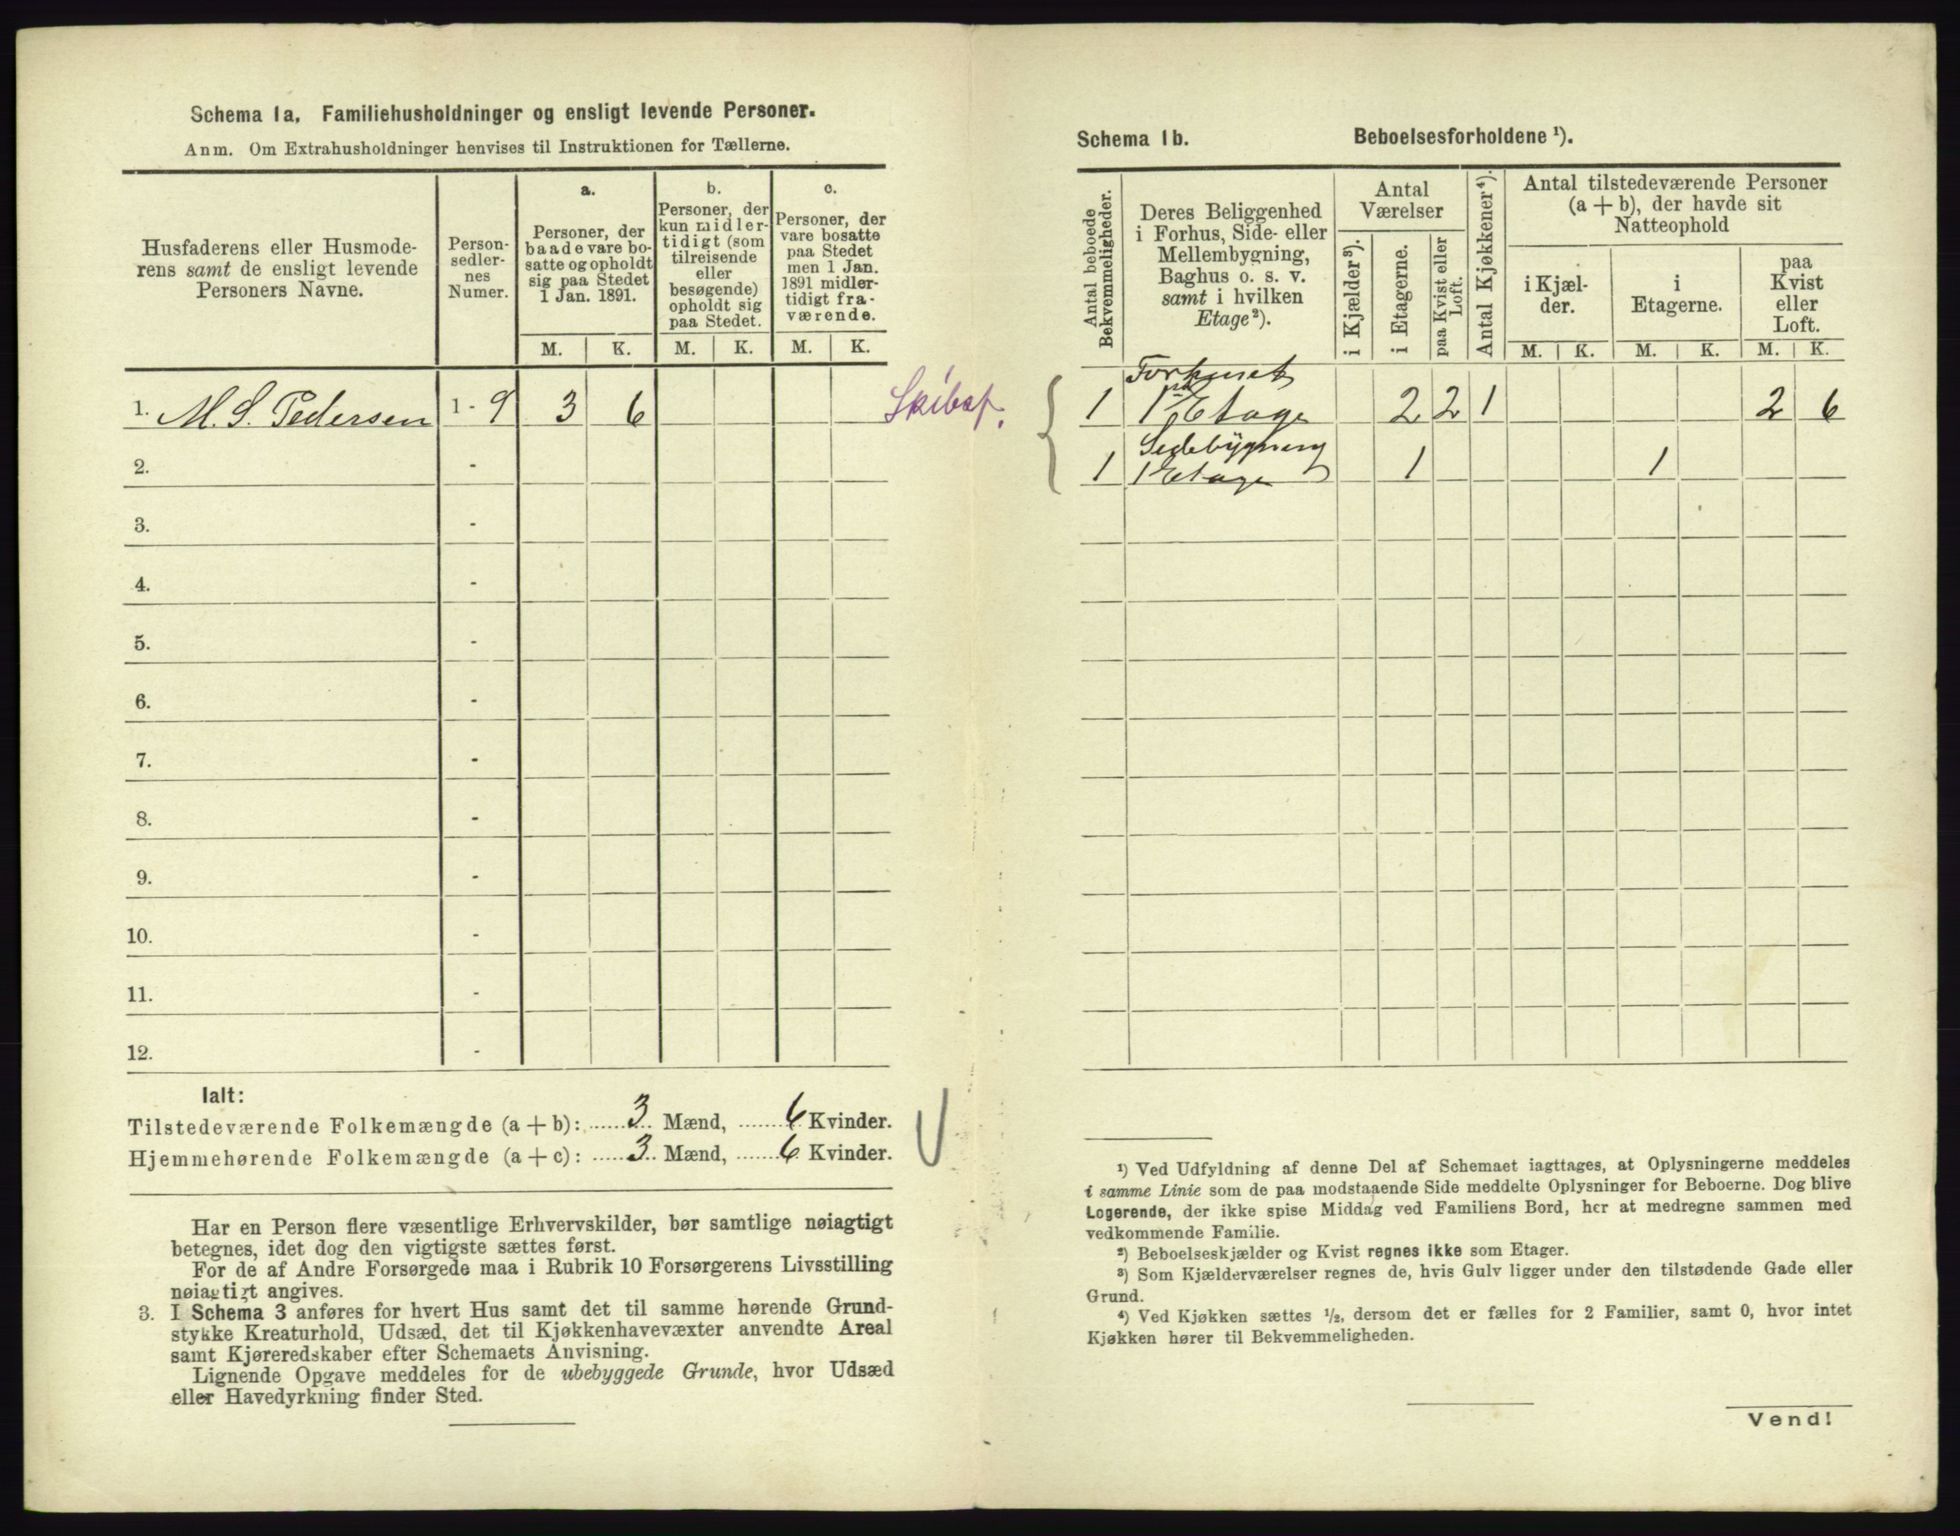 Schema 1a. Familiehusholdninger og ensligt levende Personer.
Anm. Om Extrahusholdninger henvises til Instruktionen for Tællerne.
Husfaderens eller Husmode-
rens samt de ensligt levende
Personers Navne.
Person-
sedler-
nes
Numer.
a.
Personer, der
baade vare bo-
satte og opholdt
sig paa Stedet
1 Jan. 1891.
b.
Personer, der
kun midler-
tidigt (som
tilreisende
eller
besøgende)
opholdt sig
paa Stedet.
c.
Personer, der
vare bosatte
paa Stedet
men 1 Jan.
1891 midler-
tidigt fra-
værende.
M. K. M. K. M. K.
1. M. S. Pedersen 1 - 9 3 6 Skibsf.
2. -
3. -
4. -
5. -
6. -
7. -
8. -
9. -
10. -
11. -
12. -
Ialt:
Tilstedeværende Folkemængde (a + b): ......3.. Mænd, .......6 Kvinder.
Hjemmehørende Folkemængde (a + c): ......3.. Mænd, .......6 Kvinder.
Har en Person flere væsentlige Erhvervskilder, bør samtlige nøiagtigt
betegnes, idet dog den vigtigste sættes først.
For de af Andre Forsørgede maa i Rubrik 10 Forsørgerens Livsstilling
nøiagtigt angives.
3. I Schema 3 anføres for hvert Hus samt det til samme hørende Grund-
stykke Kreaturhold, Udsæd, det til Kjøkkenhavevæxter anvendte Areal
samt Kjøreredskaber efter Schemaets Anvisning.
Lignende Opgave meddeles for de ubebyggede Grunde, hvor Udsæd
eller Havedyrkning finder Sted.
Schema 1b. Beboelsesforholdene ¹).
Antal beboede
Bekvemmeligheder.
Deres Beliggenhed
i Forhus, Side- eller
Mellembygning,
Baghus o. s. v.
samt i hvilken
Etage²).
Antal
Værelser
i Kjælder³).
i Etagerne.
paa Kvist eller
Loft.
Antal Kjøkkener⁴).
Antal tilstedeværende Personer
(a + b), der havde sit
Natteophold
i Kjæl-
der.
i
Etagerne.
paa
Kvist
eller
Loft.
M. K. M. K. M. K.
Forhuset
1 1 Etage 2 2 1 2 6
Sidebygning
1 1 Etage 1 1
¹) Ved Udfyldning af denne Del af Schemaet iagttages, at Oplysningerne meddeles
i samme Linie som de paa modstaaende Side meddelte Oplysninger for Beboerne. Dog blive
Logerende, der ikke spise Middag ved Familiens Bord, her at medregne sammen med
vedkommende Familie.
²) Beboelseskjælder og Kvist regnes ikke som Etager.
³) Som Kjælderværelser regnes de, hvis Gulv ligger under den tilstødende Gade eller
Grund.
⁴) Ved Kjøkken sættes ¹/₂, dersom det er fælles for 2 Familier, samt 0, hvor intet
Kjøkken hører til Bekvemmeligheden.
Vend!